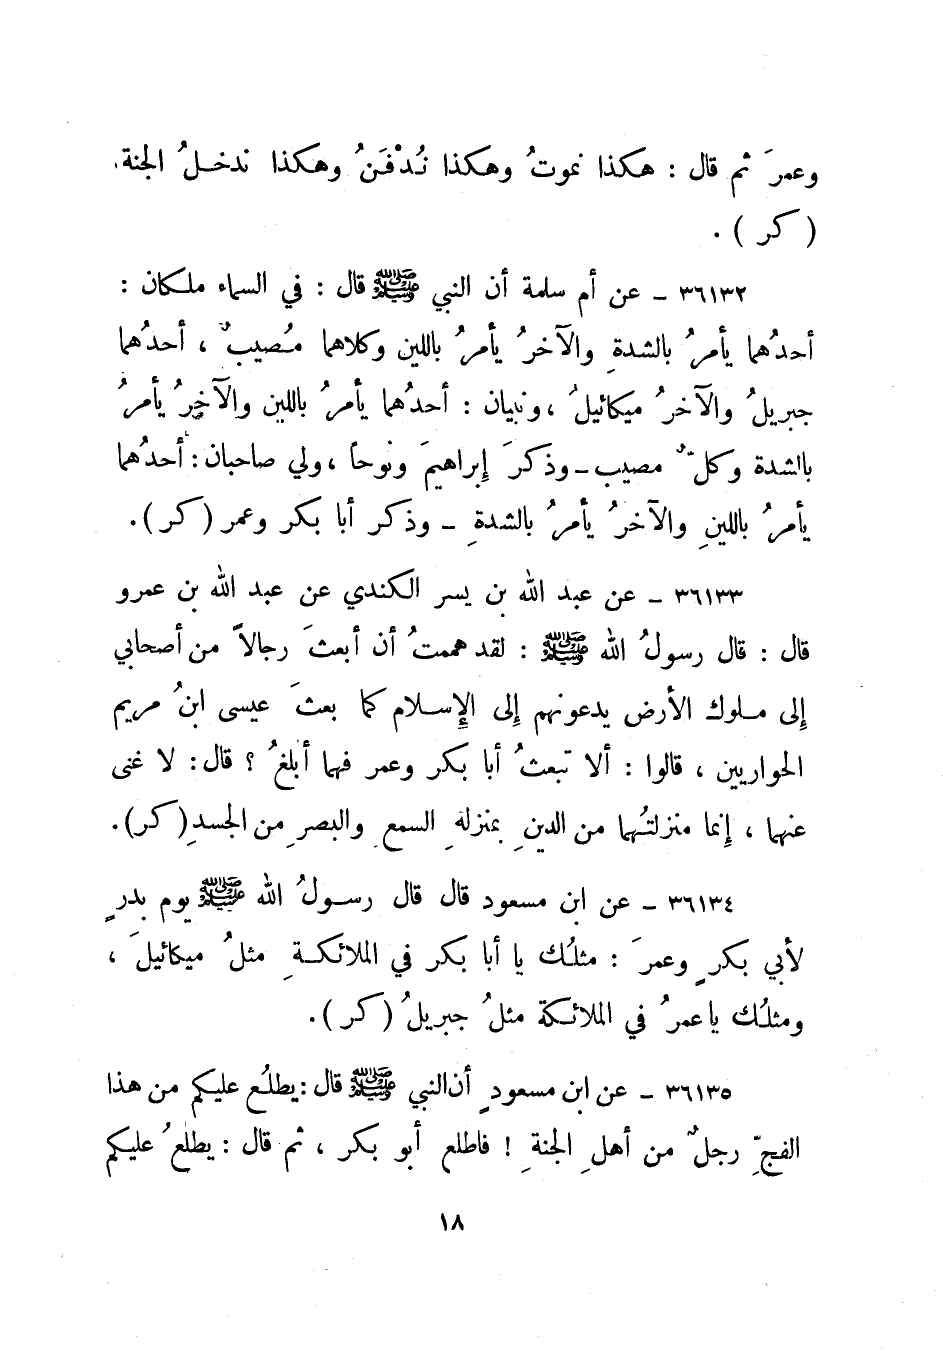 وعمرَ ثم قال : هكذا نموتُ وهكذا نُدْفَنُ وهكذا ندخلُ الجنة.
( كر ) .
٣٦١٣٢ ـ عن أم سلمة أن النبي ﷺ قال : في السماء ملكان :
أحدُهما يأمرُ بالشدةِ والآخرُ يأمرُ باللين وكلاهما مُصيبٌ ، أحدُهما
جبريلُ والآخرُ ميكائيلُ ، ونبيان : أحدُهما يأمرُ باللينِ والآخرُ يأمرُ
بالشدة وكلٌّ مصيب ـ وذكرَ إبراهيمَ ونوحاً ، ولي صاحبان : أحدُهما
يأمرُ باللينِ والآخرُ يأمرُ بالشدةِ ـ وذكر أبا بكر وعمر ( كر ) .
٣٦١٣٣ ـ عن عبد الله بن يسر الكندي عن عبد الله بن عمرو
قال : قال رسولُ الله ﷺ : لقد هممتُ أن أبعثَ رجالاً من أصحابي
إلى ملوك الأرض يدعونهم إلى الإسلام كما بعثَ عيسى ابنُ مريم
الحواريين ، قالوا : ألا تبعثُ أبا بكر وعمر فهما أبلغُ ؟ قال : لا غنى
عنهما ، إنما منزلتُهما من الدينِ بمنزلهِ السمعِ والبصرِ من الجسدِ ( كر ) .
٣٦١٣٤ ـ عن ابن مسعود قال قال رسولُ الله ﷺ يوم بدرٍ
لأبي بكرٍ وعمرَ : مثلُك يا أبا بكر في الملائكةِ مثلُ ميكائيلَ ،
ومثلُك يا عمرُ في الملائكة مثلُ جبريلُ ( كر ) .
٣٦١٣٥ ـ عن ابن مسعودٍ أن النبي ﷺ قال : يطلُع عليكم من هذا
الفجِّ رجلٌ من أهلِ الجنةِ ! فاطلع أبو بكر ، ثم قال : يطلعُ عليكم
١٨